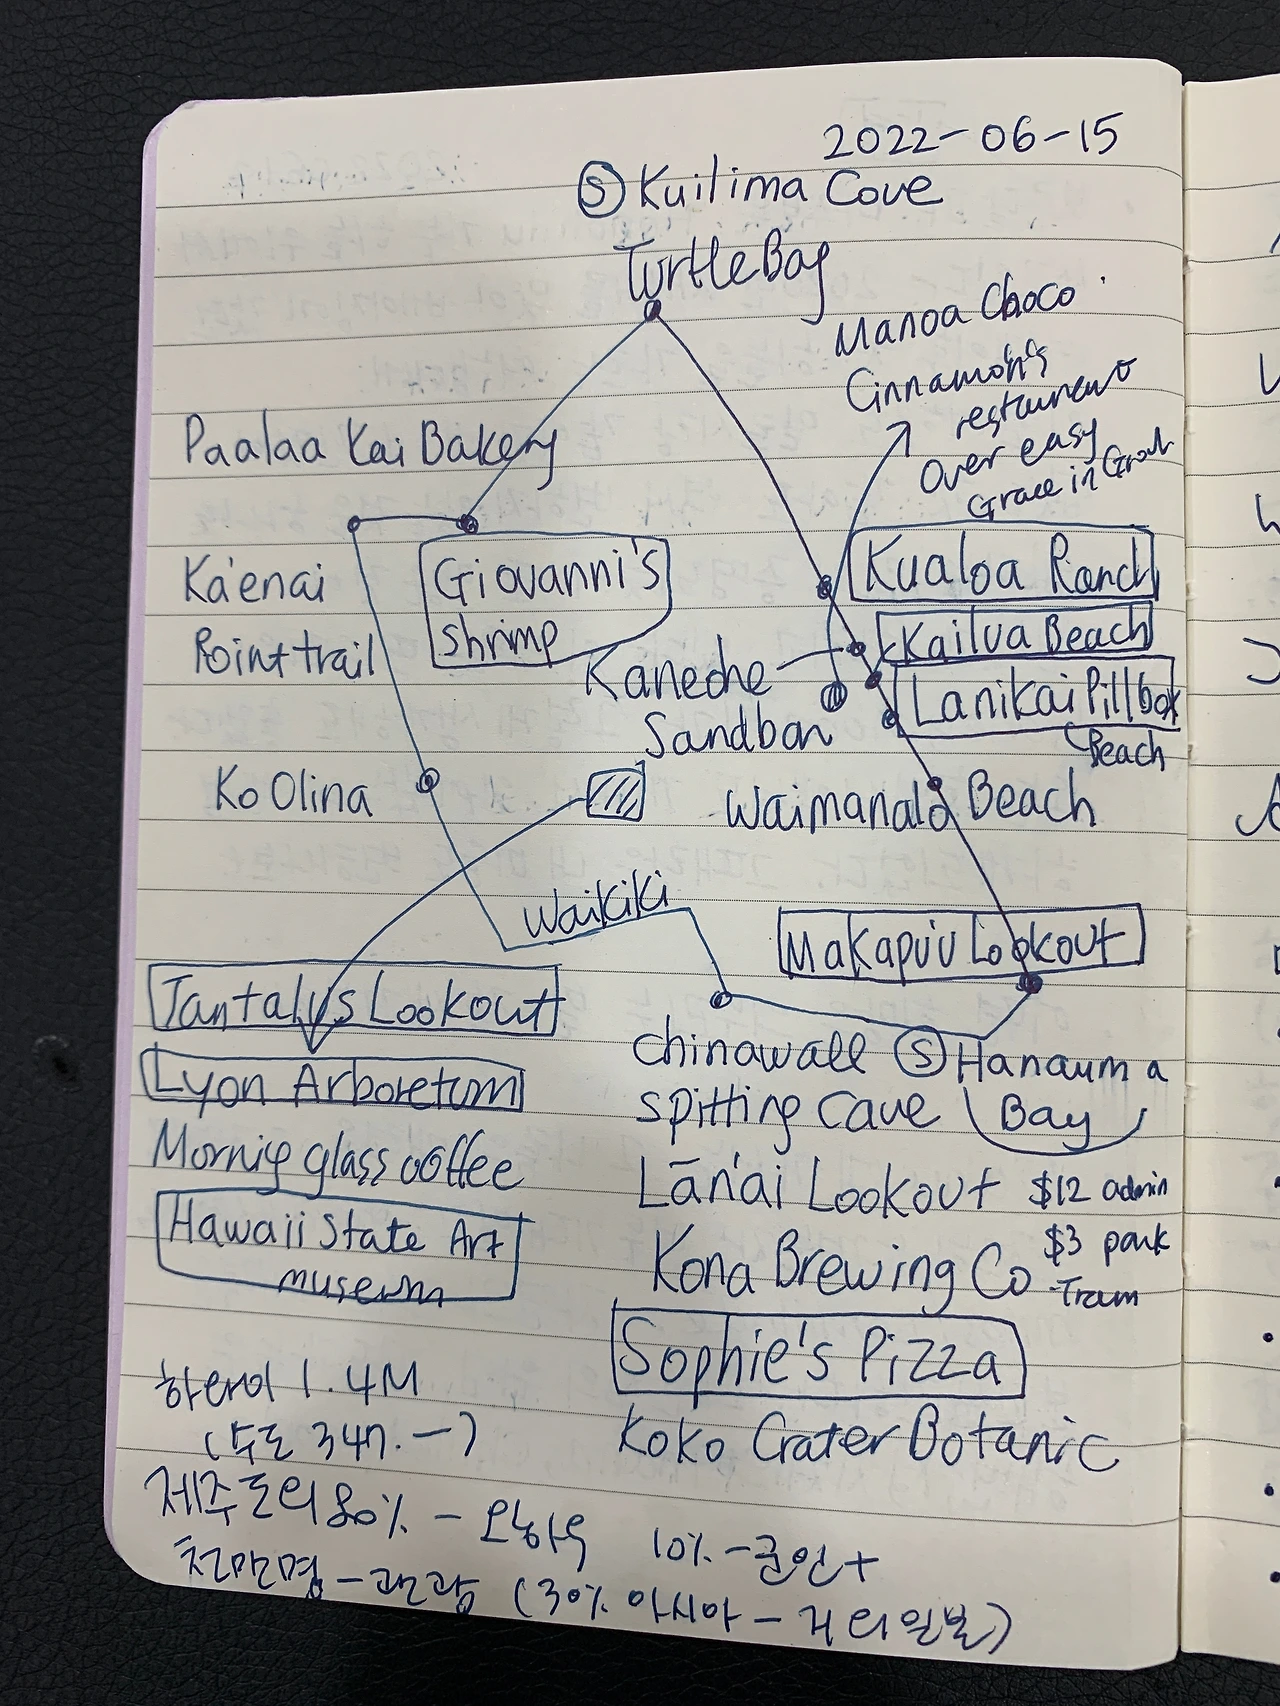 2022-06-15
Ⓢ Kuilima Cove
Turtle Bay
Manoa Choco
Cinnamon's
restaurant
Over easy
Grace in
Paalaa Kai Bakery
Ka'enai
Point trail
Giovanni's
shrimp
Kualoa Ranch
Kailua Beach
Lanikai Pillbox
Beach
Kaneohe
Sandbar
Ko Olina
Waimanalo Beach
Waikiki
Makapu'u Lookout
Tantalus Lookout
Lyon Arboretum
Mornig glass coffee
Hawaii State Art
museum
Chinawall
Spitting Cave
Ⓢ Hanauma
Bay
Lānai Lookout
$12 admin
$3 park
-Tram
Kona Brewing Co
Sophie's Pizza
Koko Crater Botanic
하와이 1.4M
제주도의 80% - 오하우 10% - 군인+
천만명 - 관광 (30% 아시아 - 거의 일본)